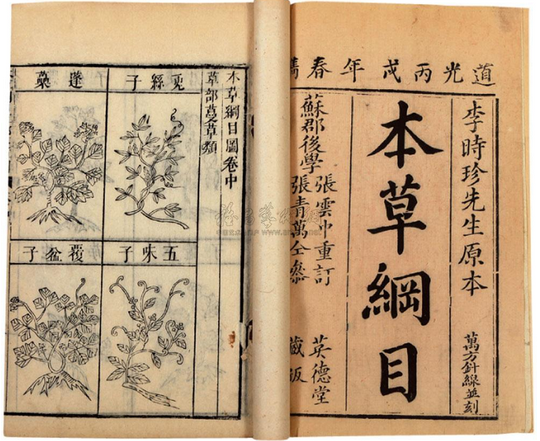 道光丙戌年春鐫
李時珍先生原本
萬方針線並刻
本草綱目
蘇郡後學
張雲中重訂
張青萬仝叅
英德堂
藏版
本草綱目圖卷中
草部蔓草類
兎絲子
蓬蘽
五味子
覆盆子